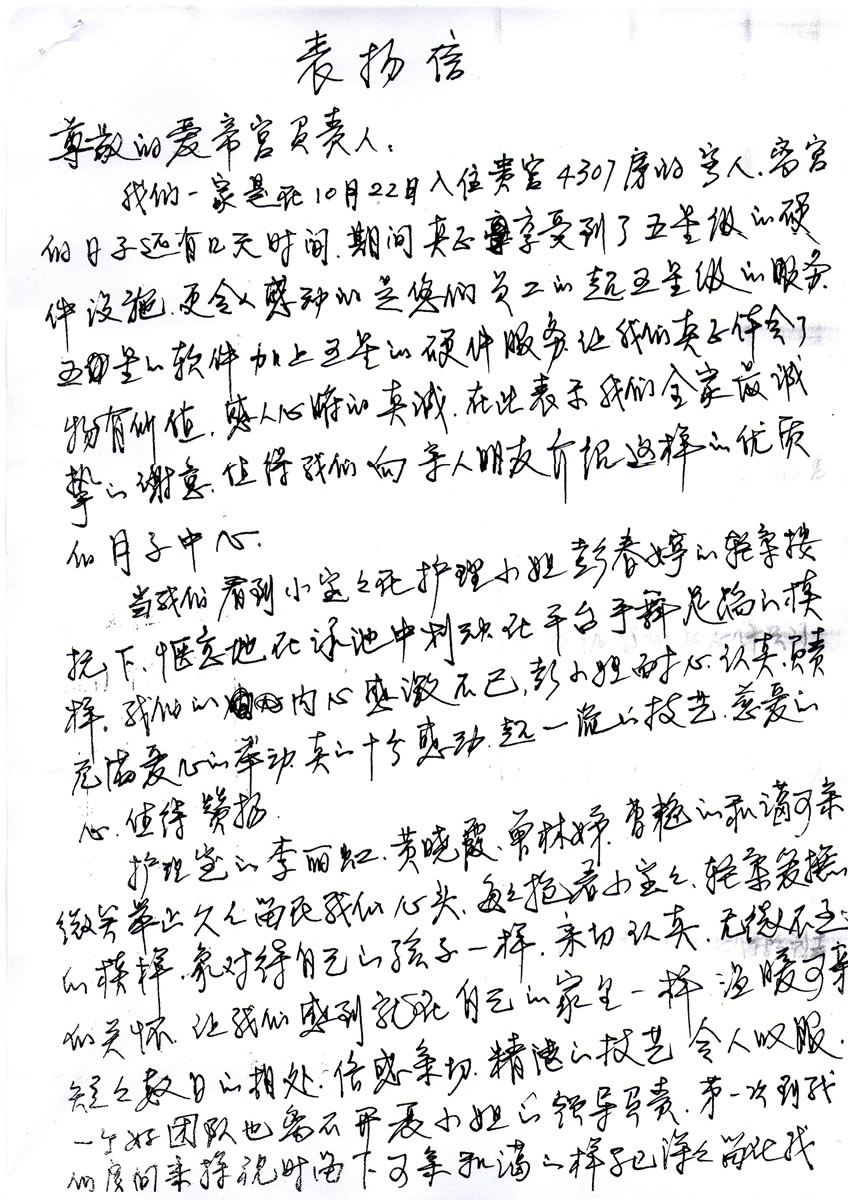 表扬信
尊敬的爱帝宫负责人:
我们一家是在10月22日入住贵宫4307房的客人.离宫
的日子还有几天时间.期间真正享受到了五星级的硬
件设施.更令人感动的是您们员工的超五星级的服务.
五星的软件加上五星的硬件服务.让我们真正体会了
物有所值.感人心脾的真诚.在此表示我们全家最诚
挚的谢意.值得我们向亲人朋友介绍这样的优质
的月子中心.
当我们看到小宝之在护理小姐彭春婷的轻柔按
抚下.惬意地在泳池中和动在平台手舞足蹈的模
样.我们的内心感激不已.彭小姐耐心.认真.负责
充满爱心的举动真的十分感动.超一流的技艺.慈爱的
心.值得赞扬.
护理室的李丽虹.黄晓霞.曾林娣.曹艳的和蔼可亲
微笑举止久久留在我们心头.每之抱着小宝之.轻柔爱抚
的模样.象对待自己的孩子一样.亲切认真.无微不至
的关怀.让我们感到就在自己的家里一样温暖可亲
短之数日的相处.倍感亲切.精湛的技艺令人叹服.
一个好团队也离不开聂小姐的领导负责.第一次到我
们房间来探视时留下可亲和蔼的样子已深之留在我